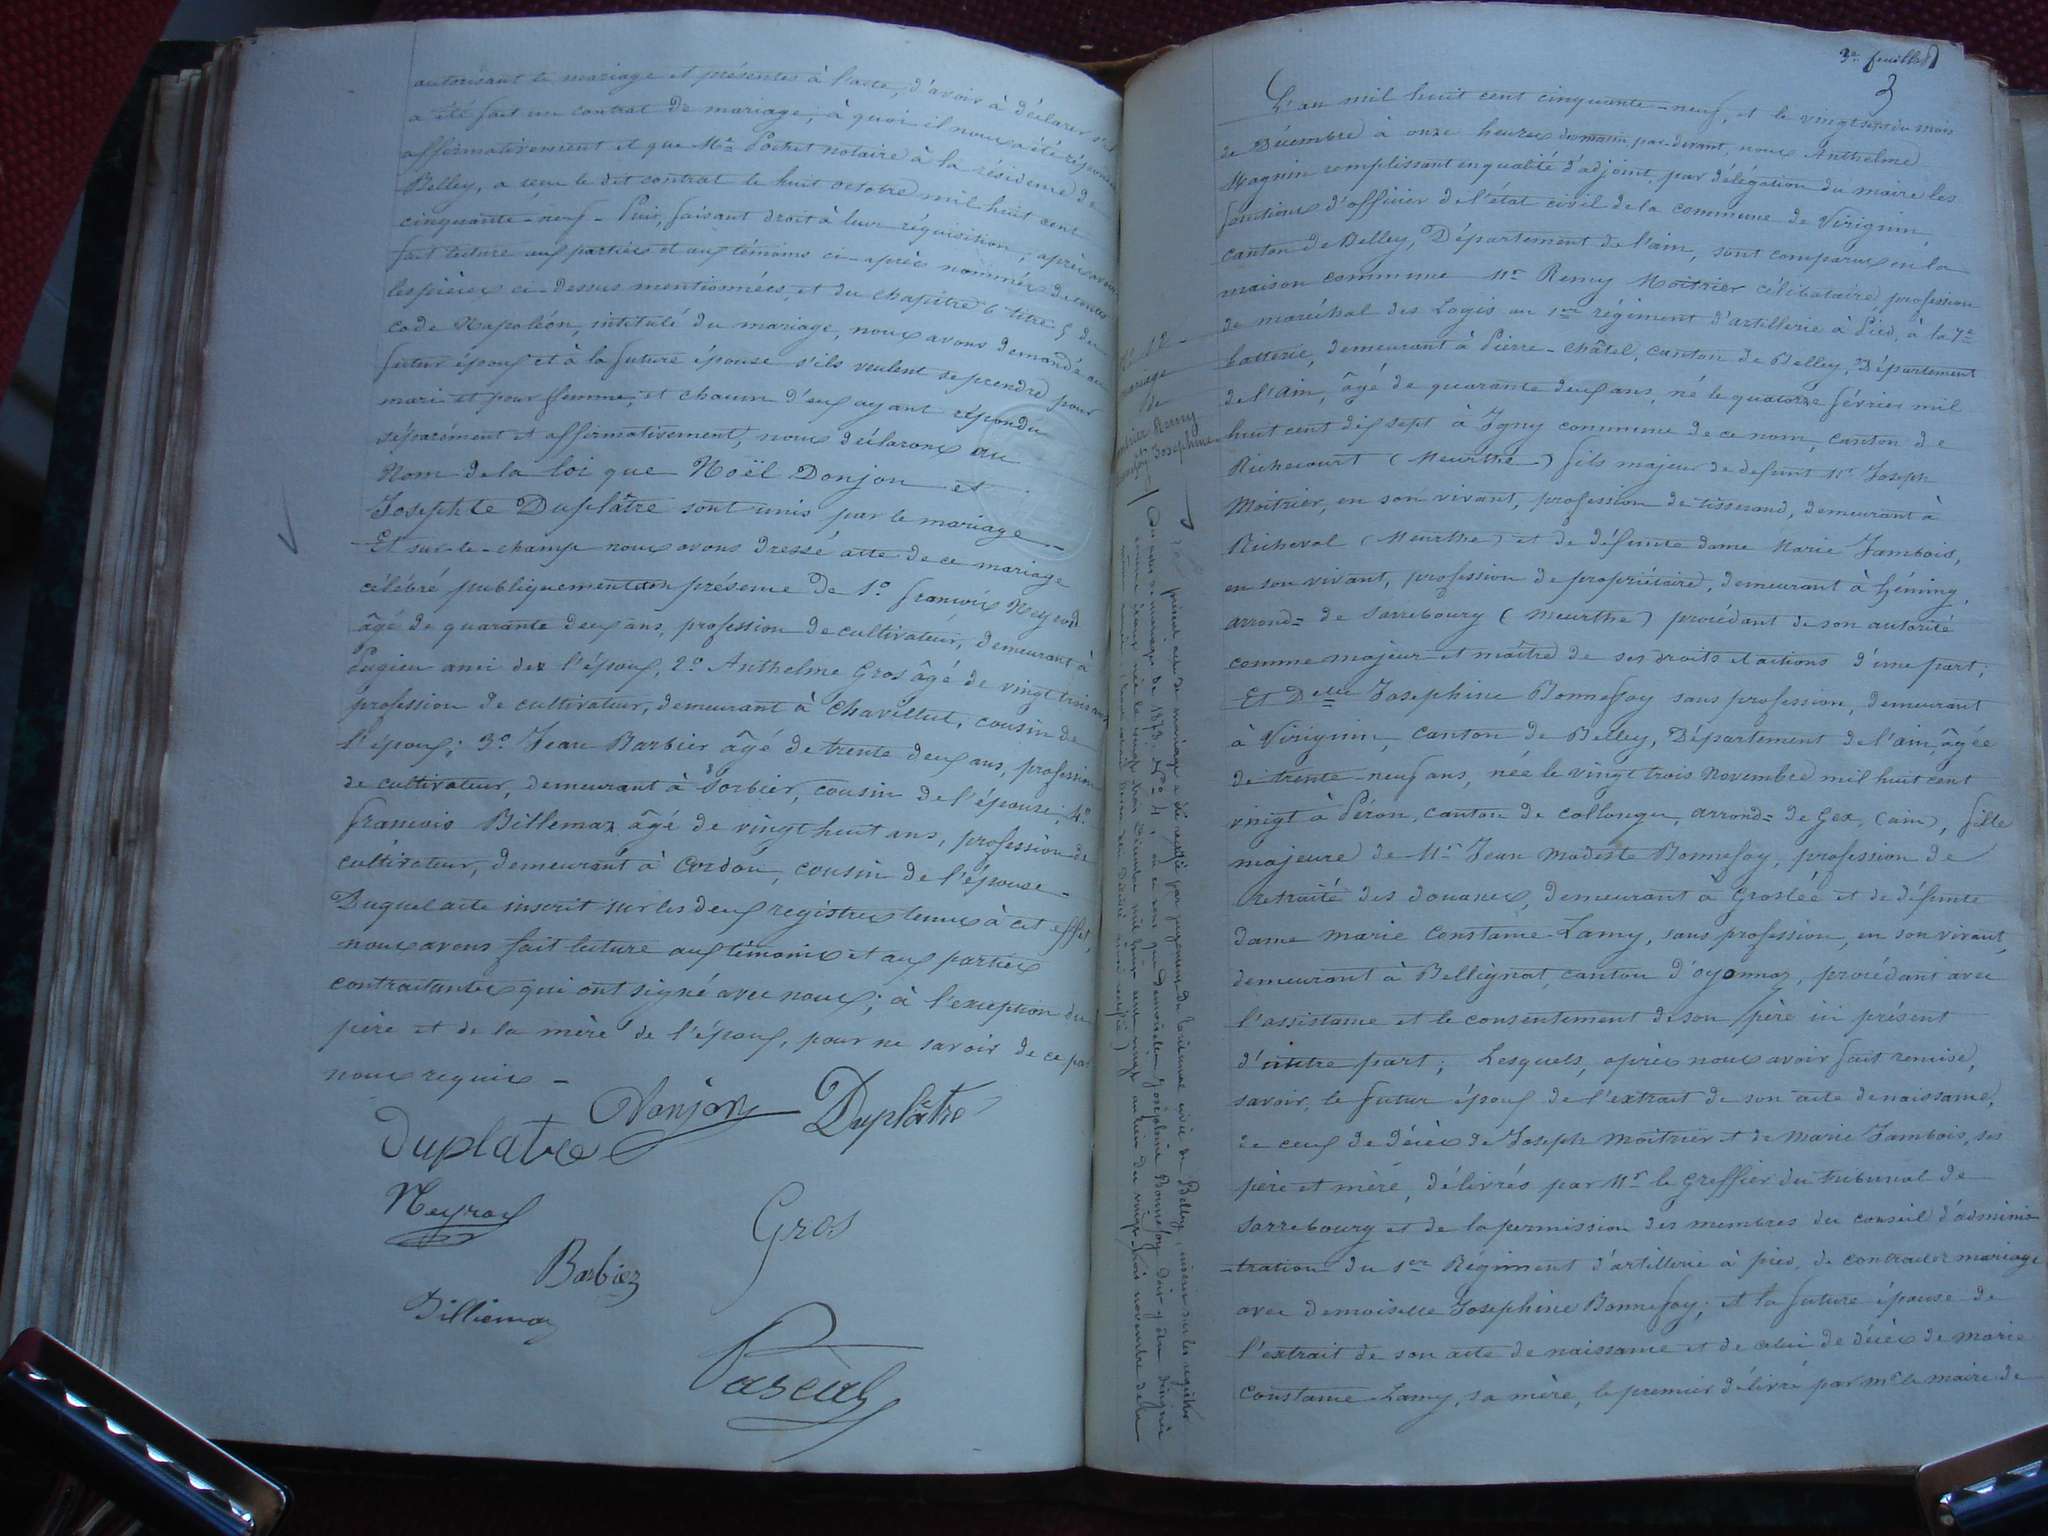 autorisant le mariage et présentes à l'acte, d'avoir à déclarer s'il
a été fait un contrat de mariage, à quoi il nous a été répondu
affirmativement et que Me Pochet notaire à la résidence de
Belley, a reçu le dit contrat le huit octobre mil huit cent
cinquante-neuf - Puis, faisant droit à leur réquisition, après avoir
fait lecture aux parties et aux témoins ci-après nommés de toutes
les pièces ci-dessus mentionnées, et du chapitre 6 titre 5 du
code Napoléon, intitulé du mariage, nous avons demandé au
futur époux et à la future épouse s'ils veulent se prendre pour
mari et pour femme; et chacun d'eux ayant répondu
séparément et affirmativement, nous déclarons au
Nom de la loi que Noël Donjon et
Josephte Duplâtre sont unis par le mariage -
Et sur-le-champ nous avons dressé acte de ce mariage
célébré publiquement en présence de 1o françois Neyrod
âgé de quarante deux ans, profession de cultivateur, demeurant à
Pugieu ami de l'époux, 2o Anthelme Gros âgé de vingt trois ans
profession de cultivateur, demeurant à Chavillieu, cousin de
l'époux; 3o Jean Barbier âgé de trente deux ans, profession
de cultivateur, demeurant à Sorbier, cousin de l'épouse; 4o
françois Billemaz âgé de vingt huit ans, profession de
cultivateur, demeurant à Cordon, cousin de l'épouse -
Duquel acte inscrit sur les deux registres tenus à cet effet,
nous avons fait lecture aux témoins et aux parties
contractantes qui ont signé avec nous; à l'exception du
père et de la mère de l'époux, pour ne savoir de ce par
nous requis -
Donjon Duplâtre
Duplatre
Neyrod
Gros
Barbier
Billiemaz
Pascal
3e feuillet
3
No 12
mariage
de
Moitrier Remy
et
Bonnefoy Josephine
présent acte de mariage a été rectifié par jugement du tribunal civil de Belley, inscrit sur les registres
des actes de mariage de 1873, No 4, en ce sens que demoiselle Josephine Bonnefoy doit y être désignée
comme étant née le vingt trois Décembre mil huit cent vingt au lieu du vingt-trois novembre de la
L'an mil huit cent cinquante-neuf, et le vingt sept du mois
de Décembre à onze heures du matin, par-devant, nous Anthelme
Magnin remplissant en qualité d'adjoint, par délégation du maire les
fonctions d'officier de l'état civil de la commune de Virignin,
canton de Belley, Département de l'ain, sont comparus en la
maison commune Mr Remy Moitrier célibataire profession
de maréchal des Logis au 1er régiment d'artillerie à Pied, à la 7e
batterie, demeurant à Pierre-châtel, canton de Belley, Département
de l'Ain, âgé de quarante deux ans, né le quatorze février mil
huit cent dix sept à Igny commune de ce nom, canton de
Richecourt (Meurthe) fils majeur de defunt Mr Joseph
Moitrier, en son vivant, profession de tisserand, demeurant à
Richeval (Meurthe) et de défunte dame Marie Jambois,
en son vivant, profession de propriétaire, demeurant à héming,
arrond= de Sarrebourg (Meurthe) procédant de son autorité
comme majeur et maître de ses droits et actions d'une part;
Et Delle Josephine Bonnefoy sans profession, demeurant
à Virignin, canton de Belley, Département de l'ain, âgée
de trente-neuf ans, née le vingt trois Novembre mil huit cent
vingt à Péron, canton de collonges, arrond= de Gex, (ain), fille
majeure de Mr Jean Modeste Bonnefoy, profession de
retraité des douanes, demeurant à Groslée et de défunte
dame marie Constance Lamy, sans profession, en son vivant,
demeurant à Bellignat, canton d'oyonnaz, procédant avec
l'assistance et le consentement de son père ici présent
d'autre part; Lesquels, après nous avoir fait remise,
savoir, le futur époux de l'extrait de son acte de naissance,
de ceux de décès de Joseph Moitrier et de Marie Jambois, ses
père et mère, délivrés par Mr le Greffier du tribunal de
Sarrebourg et de la permission des membres du conseil d'adminis
-tration du 1er Régiment d'artillerie à pied, de contracter mariage
avec demoiselle Josephine Bonnefoy; et la future épouse de
l'extrait de son acte de naissance et de celui de décès de Marie
Constance Lamy, sa mère, le premier délivré par mr le maire de